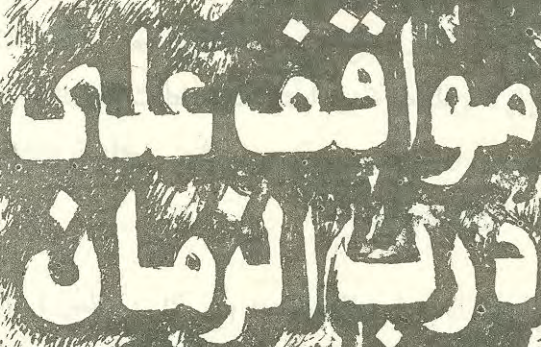 مواقف على
درب الزمان